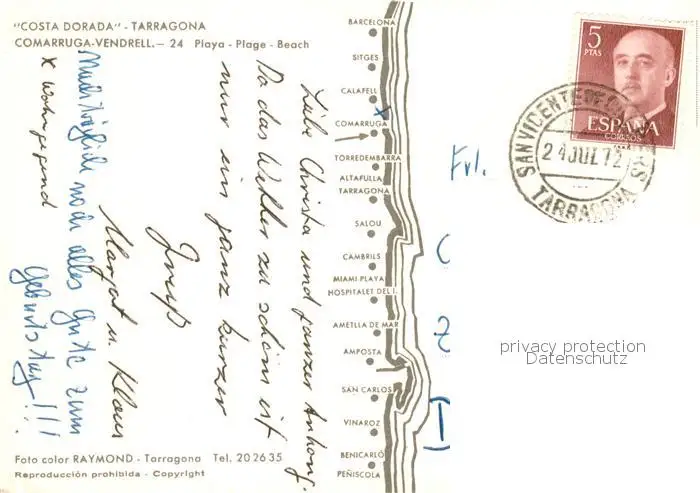 "COSTA DORADA" - TARRAGONA
COMARRUGA-VENDRELL.— 24 Playa - Plage - Beach
Liebe Christa und ganzer Anhang.
Da das Wetter zu schön ist
nur ein ganz kurzer
Gruß
Margot u. Klaus
x Wohngegend
Nachträglich noch alles Gute zum
Geburtstag!!!
BARCELONA
SITGES
CALAFELL
x
COMARRUGA
TORREDEMBARRA
ALTAFULLA
TARRAGONA
SALOU
CAMBRILS
MIAMI-PLAYA
HOSPITALET DEL I.
AMETLLA DE MAR
AMPOSTA
SAN CARLOS
VINAROZ
BENICARLÓ
PEÑISCOLA
Frl.
2
5
PTAS
ESPAÑA
CORREOS
SAN VICENTE DE
24 JUL 72
TARRAGONA
privacy protection
Datenschutz
Foto color RAYMOND - Tarragona Tel. 20 26 35
Reproducción prohibida - Copyright